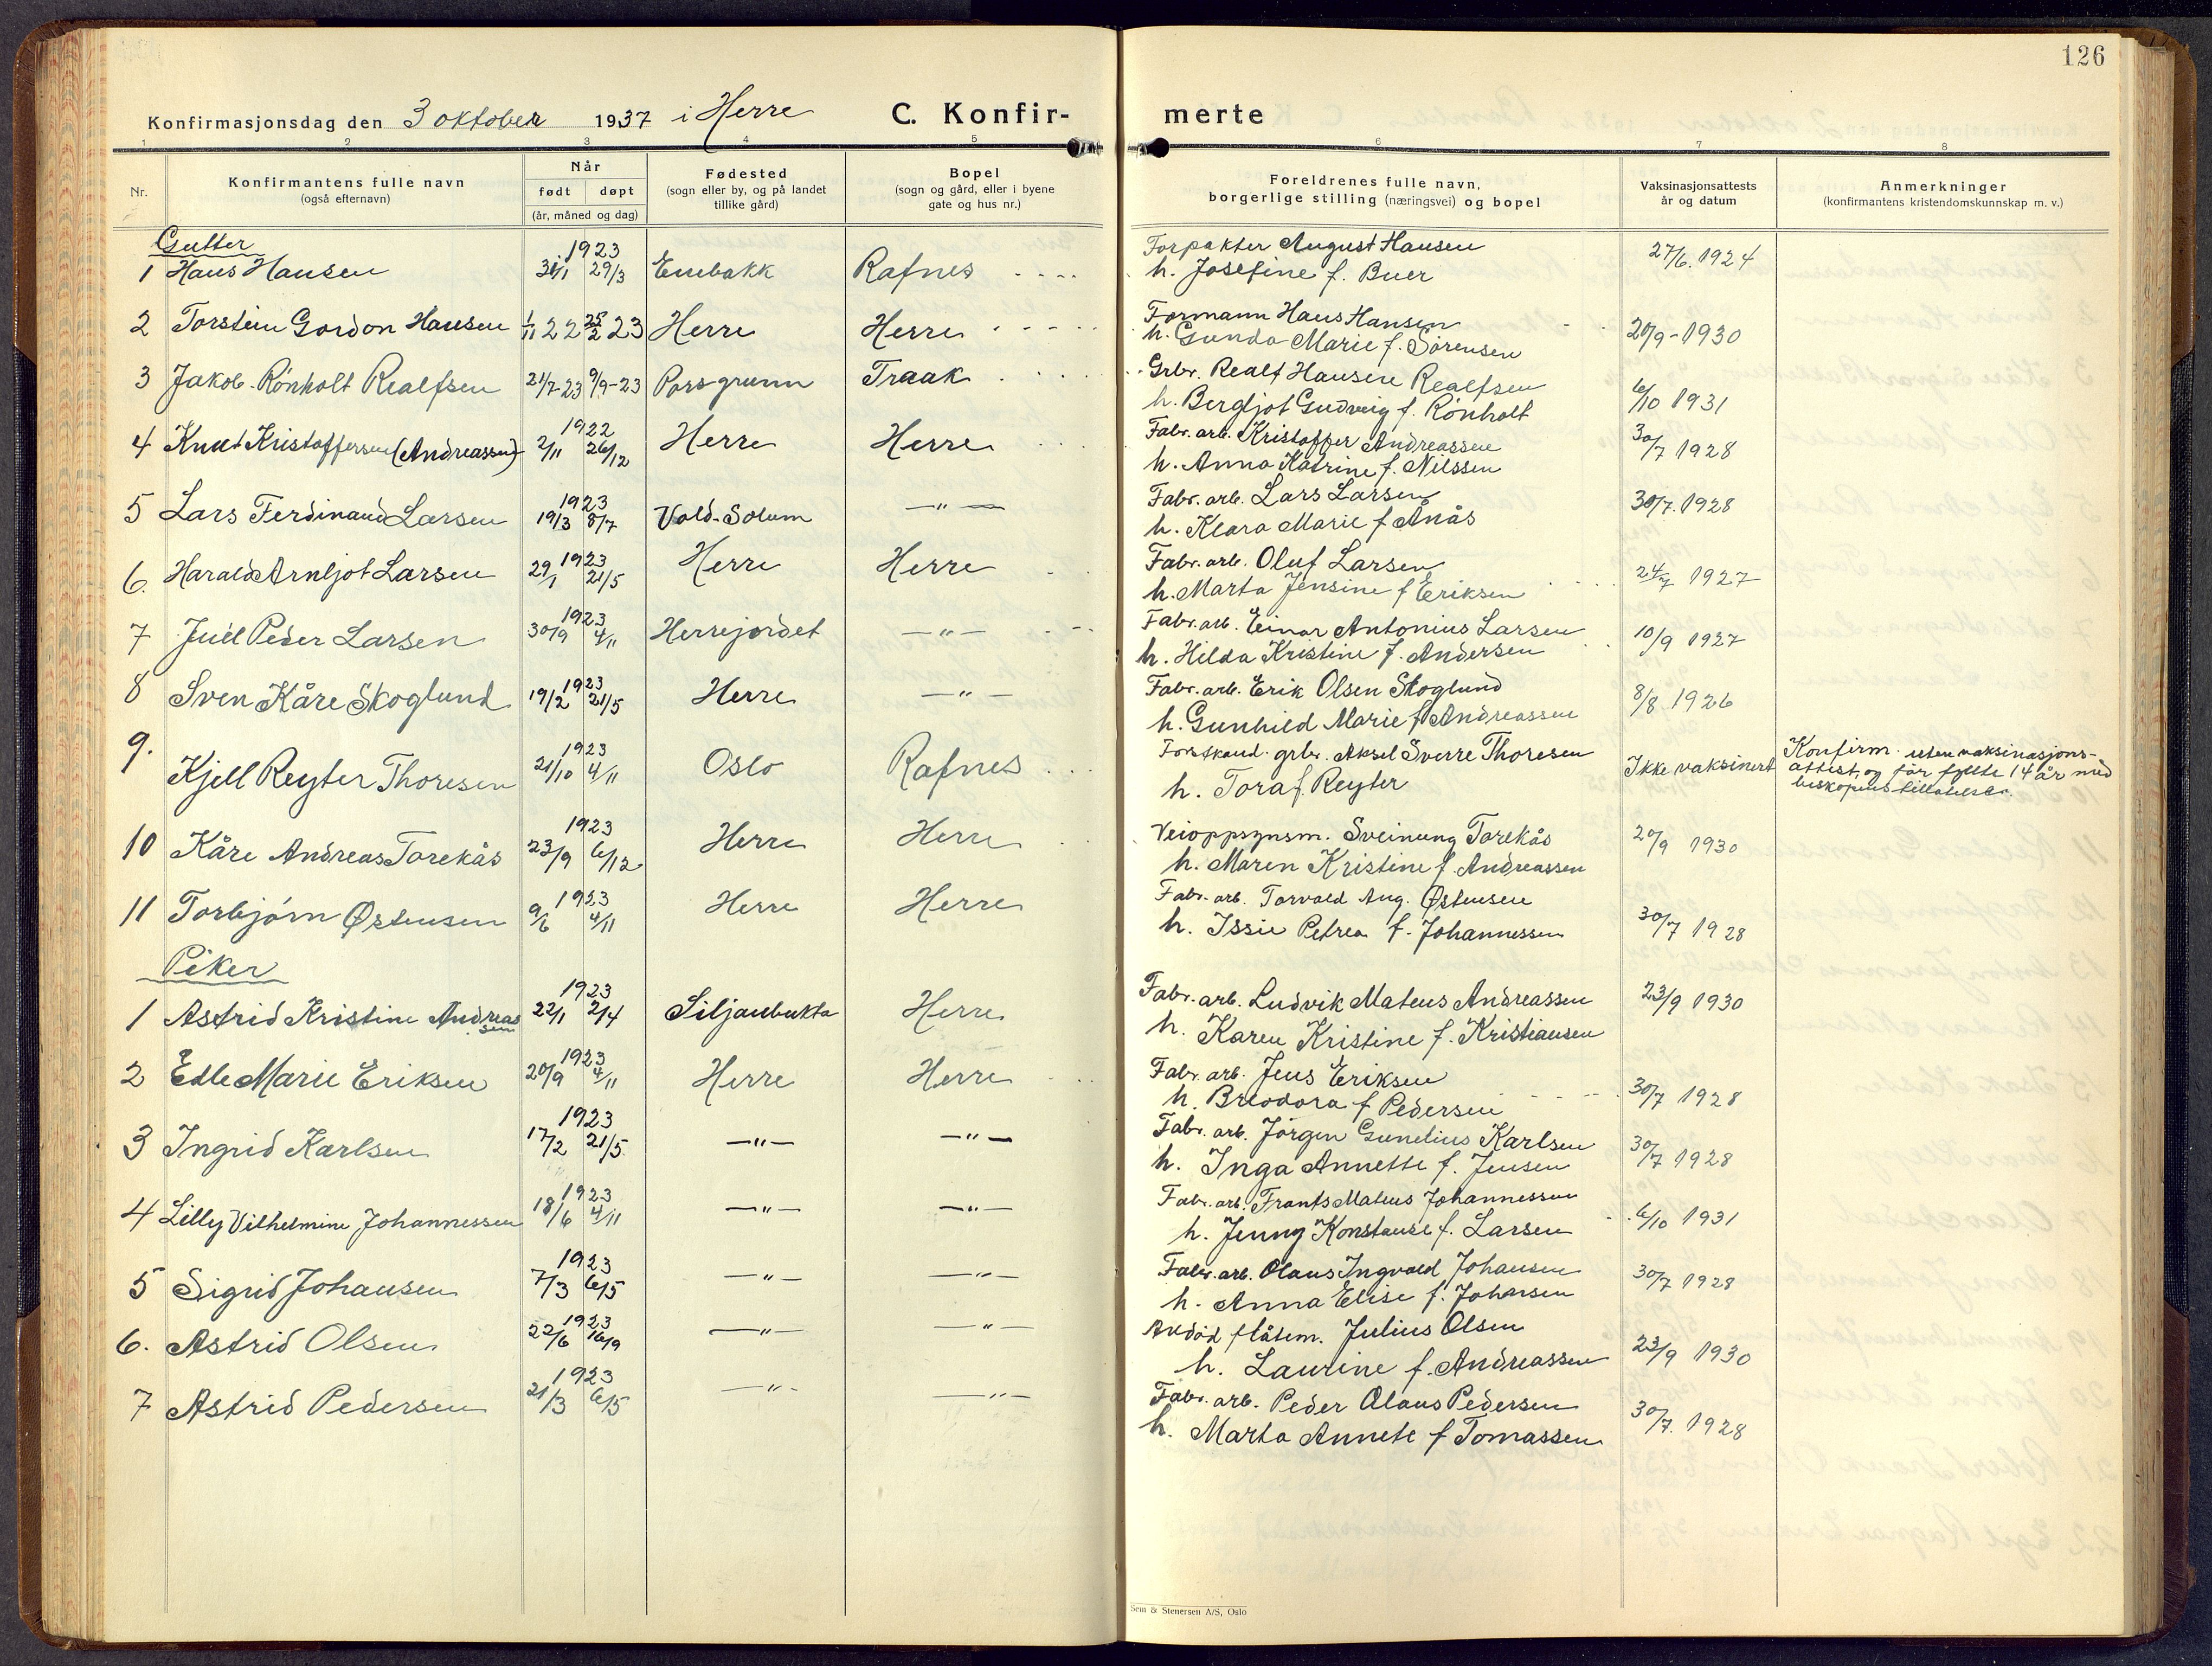 126
Konfirmasjonsdag den 3 oktober 1937 i Herre C. Konfir-merte
1 2 3 4 5 6 7 8
Nr. Konfirmantens fulle navn (også efternavn) Når født døpt (år, måned og dag) Fødested (sogn eller by, og på landet tillike gård) Bopel (sogn og gård, eller i byene gate og hus nr.) Foreldrenes fulle navn, borgerlige stilling (næringsvei) og bopel Vaksinasjonsattests år og datum Anmerkninger (konfirmantens kristendomskunnskap m. v.)
Gutter
1 Hans Hansen 1923 31/1 29/3 Enebakk Rafnes Forpakter August Hansen
h. Josefine f. Buer 27/6. 1924
2 Torstein Gordon Hansen 1/11 22 25/2 23 Herre Herre Formann Hans Hansen
h. Gunda Marie f. Sørensen 20/9-1930
3 Jakob Rønholt Realfsen 21/7-23 9/9-23 Porsgrunn Traak Grbr. Realf Hansen Realfsen
h. Bergljot Gudveig f. Rønholt 6/10 1931
4 Knut Kristoffersen (Andreassen) 1922 2/11 26/12 Herre Herre Fabr. arb. Kristoffer Andreassen
h. Anna Katrine f. Nilssen 30/7 1928
5 Lars Ferdinand Larsen 1923 19/3 8/7 Vold-Solum —"— Fabr. arb. Lars Larsen
h. Klara Marie f Anås 30/7. 1928
6. Harald Arnljot Larsen 1923 29/1 21/5 Herre Herre Fabr. arb. Oluf Larsen
h. Marta Jensine f Eriksen 24/7 1927
7 Juel Peder Larsen 1923 30/9 4/11 Herrejordet —"— Fabr. arb. Einar Antonius Larsen
h. Hilda Kristine f. Andersen 10/9 1927
8 Sven Kåre Skoglund 1923 19/2 21/5 Herre —"— Fabr. arb. Erik Olsen Skoglund
h. Gunhild Marie f Andreassen 8/8 1926
9. Kjell Reyter Thoresen 1923 21/10 4/11 Oslo Rafnes Forstkand. grbr. Aksel Sverre Thoresen
h. Tora f. Reyter Ikke vaksinert Konfirm. uten vaksinasjons-
attest, og før fyllte 14 år med
biskopens tillatelse.
10 Kåre Andreas Torekås 1923 23/9 6/12 Herre Herre Veioppsynsm. Sveinung Torekås
h. Maren Kristine f. Andreassen 20/9 1930
11 Torbjørn Østensen 1923 9/6 4/11 Herre Herre Fabr. arb. Torvald Aug. Østensen
h. Issie Petrea f. Johannessen 30/7 1928
Piker
1 Astrid Kristine Andreassen 1923 22/1 2/4 Siljanbukta Herre Fabr. arb. Ludvik Mateus Andreassen
h. Karen Kristine f. Kristiansen 23/9 1930
2 Edle Marie Eriksen 1923 20/9 4/11 Herre Herre Fabr. arb. Jens Eriksen
h. Breodora f Pedersen 30/7 1928
3 Ingrid Karlsen 1923 17/2 21/5 —"— —"— Fabr. arb. Jørgen Gunelius Karlsen
h. Inga Annette f. Jensen 30/7 1928
4 Lilly Vilhelmine Johannessen 1923 18/6 4/11 —"— —"— Fabr. arb. Frants Mateus Johannessen
h. Jenny Konstanse f. Larsen 6/10 1931
5 Sigrid Johansen 1923 7/3 6/5 —"— —"— Fabr. arb. Olaus Ingvald Johansen
h. Anna Elise f. Johansen 30/7 1928
6. Astrid Olsen 1923 22/6 16/9 —"— —"— Avdød flåtem. Julius Olsen
h. Laurine f. Andreassen 23/9 1930
7 Astrid Pedersen 1923 21/3 6/5 —"— —"— Fabr. arb. Peder Olaus Pedersen
h. Marta Annete f Tomassen 30/7. 1928
Sem & Stenersen A/S, Oslo